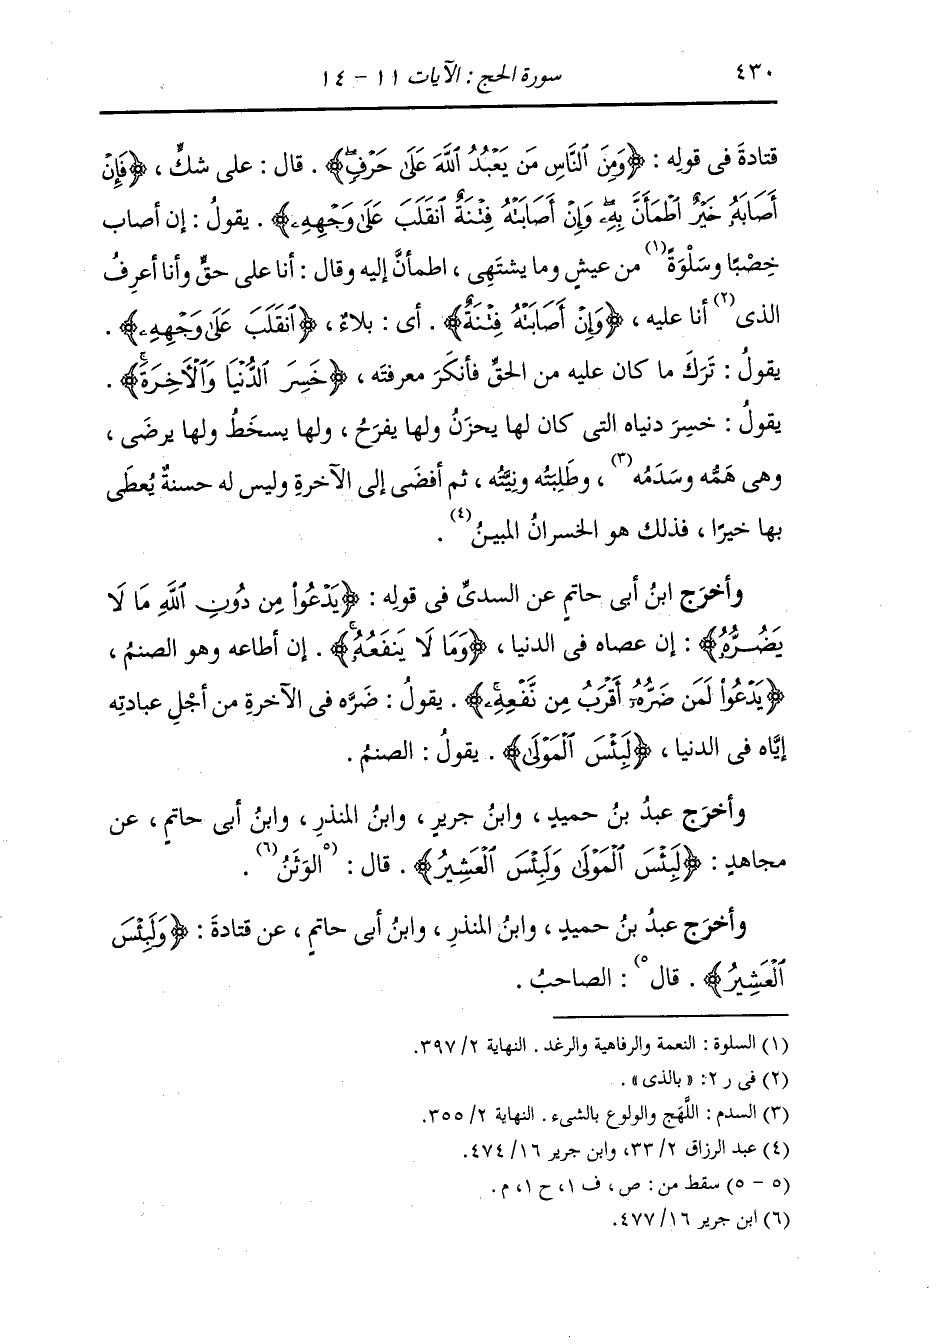 ٤٣٠ سورة الحج : الآيات ١١ - ١٤
قتادةَ فى قولِه : ﴿وَمِنَ ٱلنَّاسِ مَن يَعْبُدُ ٱللَّهَ عَلَىٰ حَرْفٍۖ﴾ . قال : على شكٍّ ، ﴿فَإِنْ
أَصَابَهُۥ خَيْرٌ ٱطْمَأَنَّ بِهِۦۖ وَإِنْ أَصَابَتْهُ فِتْنَةٌ ٱنقَلَبَ عَلَىٰ وَجْهِهِۦ﴾ . يقولُ : إن أصاب
خِصْبًا وسَلْوَةً(١) من عيشٍ وما يشتَهِى ، اطمأنَّ إليه وقال : أنا على حقٍّ وأنا أعرِفُ
الذى(٢) أنا عليه ، ﴿وَإِنْ أَصَابَتْهُ فِتْنَةٌ﴾ . أى : بلاءٌ ، ﴿ٱنقَلَبَ عَلَىٰ وَجْهِهِۦ﴾ .
يقولُ : تَرَكَ ما كان عليه من الحقِّ فأنكَرَ معرفتَه ، ﴿خَسِرَ ٱلدُّنْيَا وَٱلْأَخِرَةَۚ﴾ .
يقولُ : خسِرَ دنياه التى كان لها يحزَنُ ولها يفرَحُ ، ولها يسخَطُ ولها يرضَى ،
وهى هَمُّه وسَدَمُه(٣) ، وطَلِبَتُه ونِيَّتُه ، ثم أفضَى إلى الآخرةِ وليس له حسنةٌ يُعطَى
بها خيرًا ، فذلك هو الخسرانُ المبينُ(٤) .
وأخرَج ابنُ أبى حاتمٍ عن السدىِّ فى قولِه : ﴿يَدْعُواْ مِن دُونِ ٱللَّهِ مَا لَا
يَضُرُّهُۥ﴾ : إن عصاه فى الدنيا ، ﴿وَمَا لَا يَنفَعُهُۥۚ﴾ . إن أطاعه وهو الصنمُ ،
﴿يَدْعُواْ لَمَن ضَرُّهُۥٓ أَقْرَبُ مِن نَّفْعِهِۦۚ﴾ . يقولُ : ضَرُّه فى الآخرةِ من أجْلِ عبادتِه
إيَّاه فى الدنيا ، ﴿لَبِئْسَ ٱلْمَوْلَىٰ﴾ . يقولُ : الصنمُ .
وأخرَج عبدُ بنُ حميدٍ ، وابنُ جريرٍ ، وابنُ المنذرِ ، وابنُ أبى حاتمٍ ، عن
مجاهدٍ : ﴿لَبِئْسَ ٱلْمَوْلَىٰ وَلَبِئْسَ ٱلْعَشِيرُ﴾ . قال : (٥الوَثَنُ(٦) .
وأخرَج عبدُ بنُ حميدٍ ، وابنُ المنذرِ ، وابنُ أبى حاتمٍ ، عن قتادةَ : ﴿وَلَبِئْسَ
ٱلْعَشِيرُ﴾ . قال٥) : الصاحبُ .
(١) السلوة : النعمة والرفاهية والرغد . النهاية ٢/ ٣٩٧.
(٢) فى ر ٢: « بالذى » .
(٣) السدم : اللَّهَج والولوع بالشىء . النهاية ٢/ ٣٥٥.
(٤) عبد الرزاق ٢/ ٣٣، وابن جرير ١٦/ ٤٧٤.
(٥ - ٥) سقط من : ص ، ف ١، ح ١، م .
(٦) ابن جرير ١٦/ ٤٧٧.